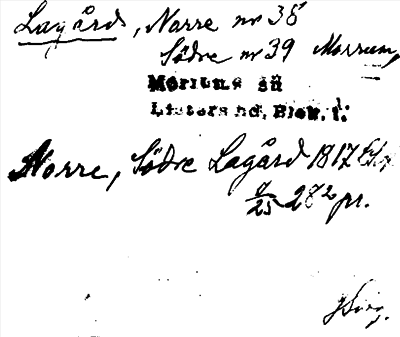 Lagård, Norre nr 38
Södre nr 39 Morrum,
Mörrums sn
Listers hd, Blek. l.
Norre, Södre Lagård 1817
9/25 282 pr.